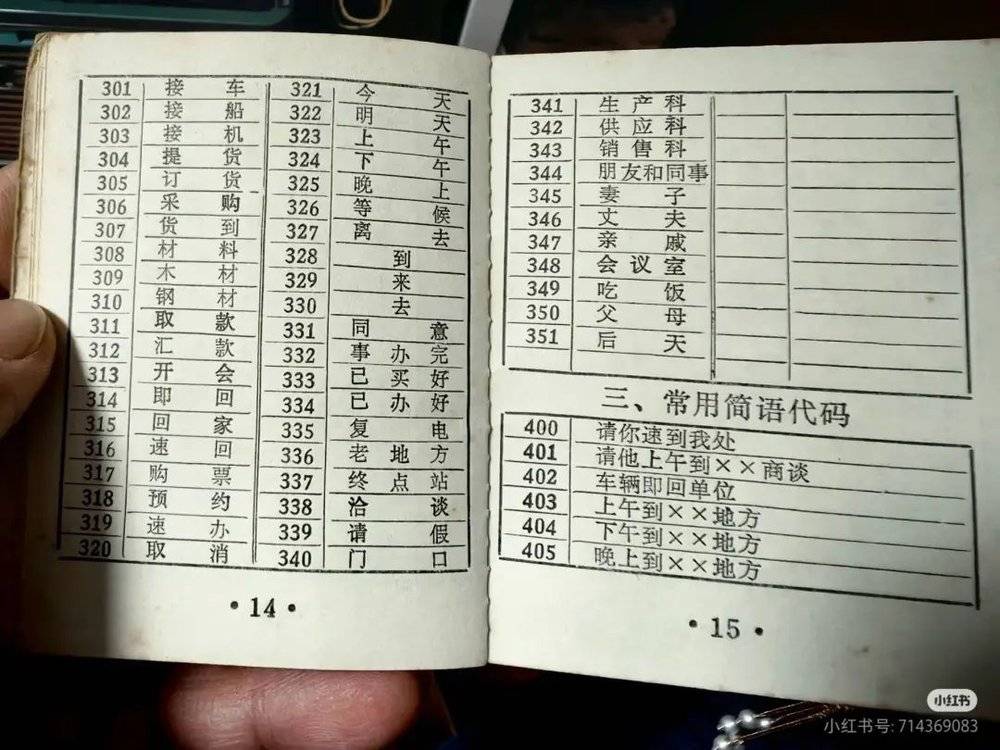 301 接车
302 接船
303 接机
304 提货
305 订货
306 采购
307 货到
308 材料
309 木材
310 钢材
311 取款
312 汇款
313 开会
314 即回
315 回家
316 速回
317 购票
318 预约
319 速办
320 取消
321 今天
322 明天
323 上午
324 下午
325 晚上
326 等候
327 离去
328 到
329 来
330 去
331 同意
332 事办完
333 已买好
334 已办好
335 复电
336 老地方
337 终点站
338 洽谈
339 请假
340 门口
·14·
341 生产科
342 供应科
343 销售科
344 朋友和同事
345 妻子
346 丈夫
347 亲戚
348 会议室
349 吃饭
350 父母
351 后天
三、常用简语代码
400 请你速到我处
401 请他上午到××商谈
402 车辆即回单位
403 上午到××地方
404 下午到××地方
405 晚上到××地方
·15·
小红书
小红书号: 714369083